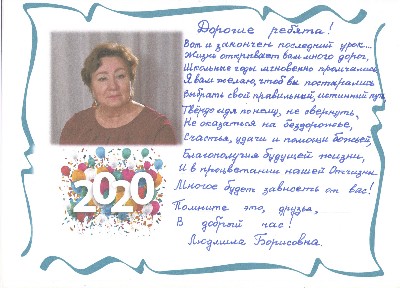 Дорогие ребята!
Вот и закончен последний урок...
Жизнь открывает вам много дорог,
Школьные годы мгновенно промчались
Я вам желаю, чтоб вы постарались
Выбрать свой правильный, истинный путь
Твёрдо идя по нему, не свернуть,
Не оказаться на бездорожье,
Счастья, удачи и помощи божьей,
Благополучия будущей жизни,
И в процветании нашей Отчизны
Многое будет зависеть от вас!
Помните это, друзья,
В добрый час!
Людмила Борисовна.
2020